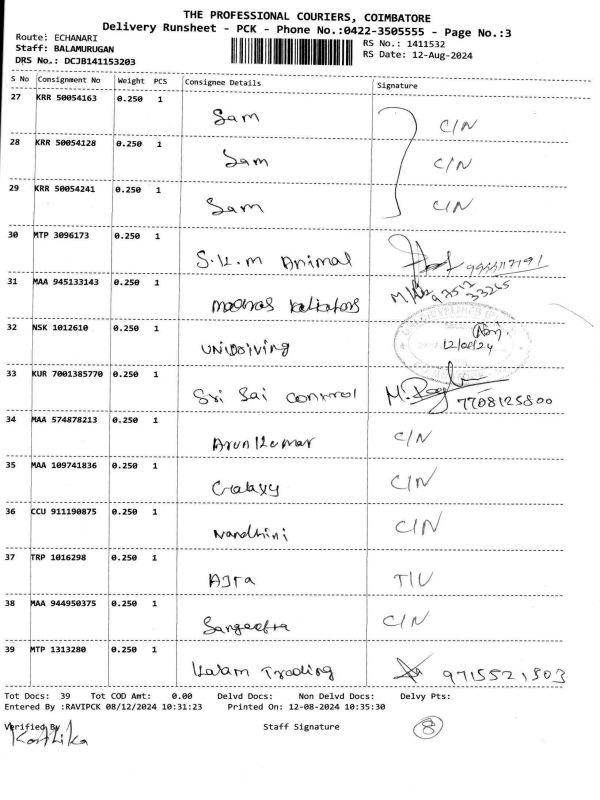 THE PROFESSIONAL COURIERS, COIMBATORE
Delivery Runsheet - PCK - Phone No.:0422-3505555 - Page No.:3
Route: ECHANARI
RS No.: 1411532
Staff: BALAMURUGAN
RS Date: 12-Aug-2024
DRS No.: DCJB141153203
S No Consignment No Weight PCS Consignee Details Signature
27 KRR 50054163 0.250 1 Sam C/N
28 KRR 50054128 0.250 1 Sam C/N
29 KRR 50054241 0.250 1 Sam C/N
30 MTP 3096173 0.250 1 S.K.M Animal
31 MAA 945133143 0.250 1 Madras 97512 33265
32 NSK 1012610 0.250 1 12/08/24
33 KUR 7001385770 0.250 1 Sri Sai Control 7708125800
34 MAA 574878213 0.250 1 Arun Kumar C/N
35 MAA 109741836 0.250 1 Galaxy C/N
36 CCU 911190875 0.250 1 Nandhini C/N
37 TRP 1016298 0.250 1 T/U
38 MAA 944950375 0.250 1 Sangeetha C/N
39 MTP 1313280 0.250 1 Kalam Trading
Tot Docs: 39 Tot COD Amt: 0.00 Delvd Docs: Non Delvd Docs: Delvy Pts:
Entered By :RAVIPCK 08/12/2024 10:31:23 Printed On: 12-08-2024 10:35:30
Verified By Staff Signature 8
Karthika